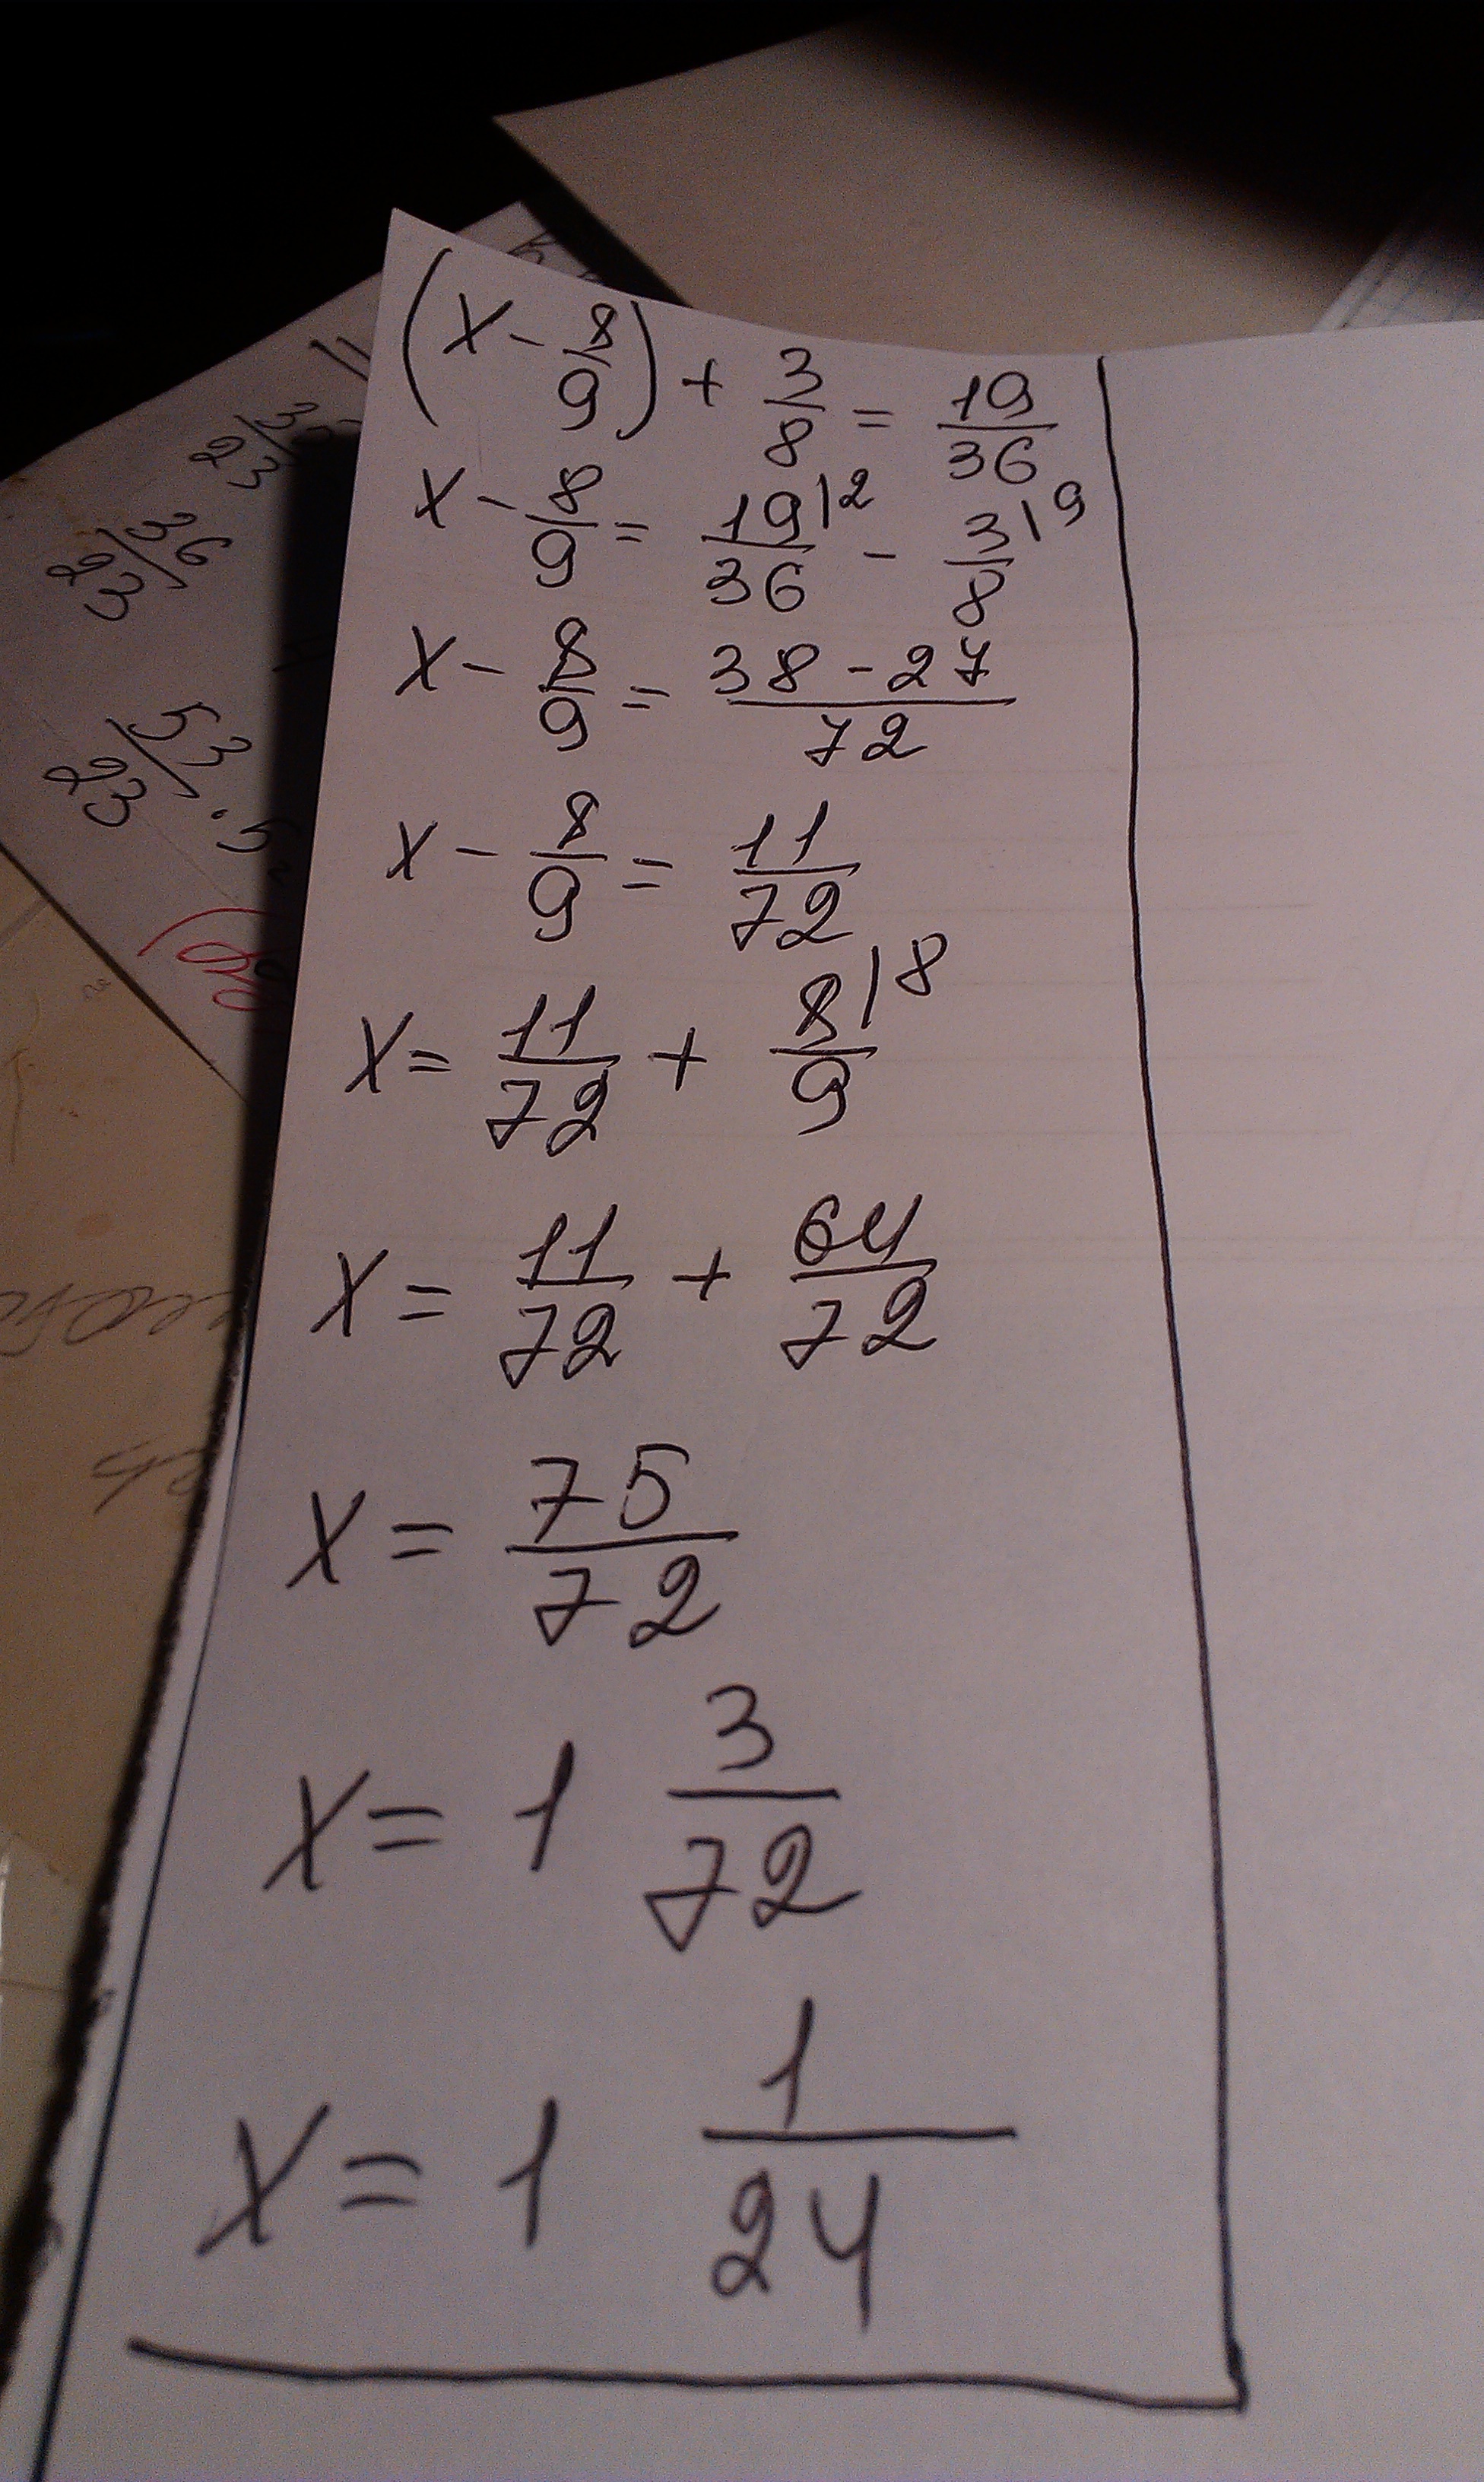 (x - 8/9) + 3/8 = 19/36
x - 8/9 = 19/36 |2 - 3/8 |9
x - 8/9 = (38 - 27)/72
x - 8/9 = 11/72
x = 11/72 + 8/9 |8
x = 11/72 + 64/72
x = 75/72
x = 1 3/72
x = 1 1/24